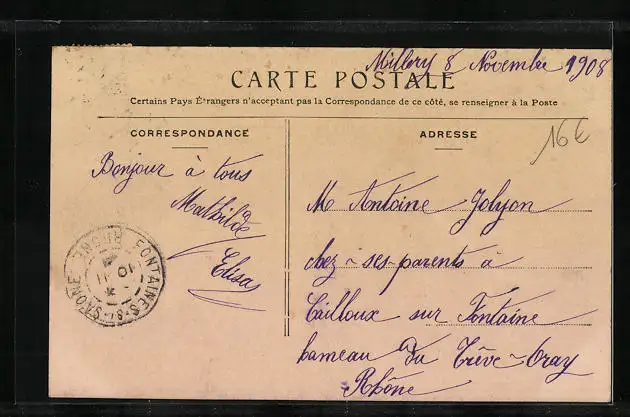 Millery 8 Novembre 1908
CARTE POSTALE
Certains Pays Étrangers n'acceptent pas la Correspondance de ce côté, se renseigner à la Poste
CORRESPONDANCE
ADRESSE
16€
Bonjour à tous
Mathilde
Elisa
M Antoine Jolyon
chez ses parents à
Cailloux sur Fontaine
hameau du Trève-Oray
Rhône
FONTAINES-S-SAÔNE RHONE
10
11